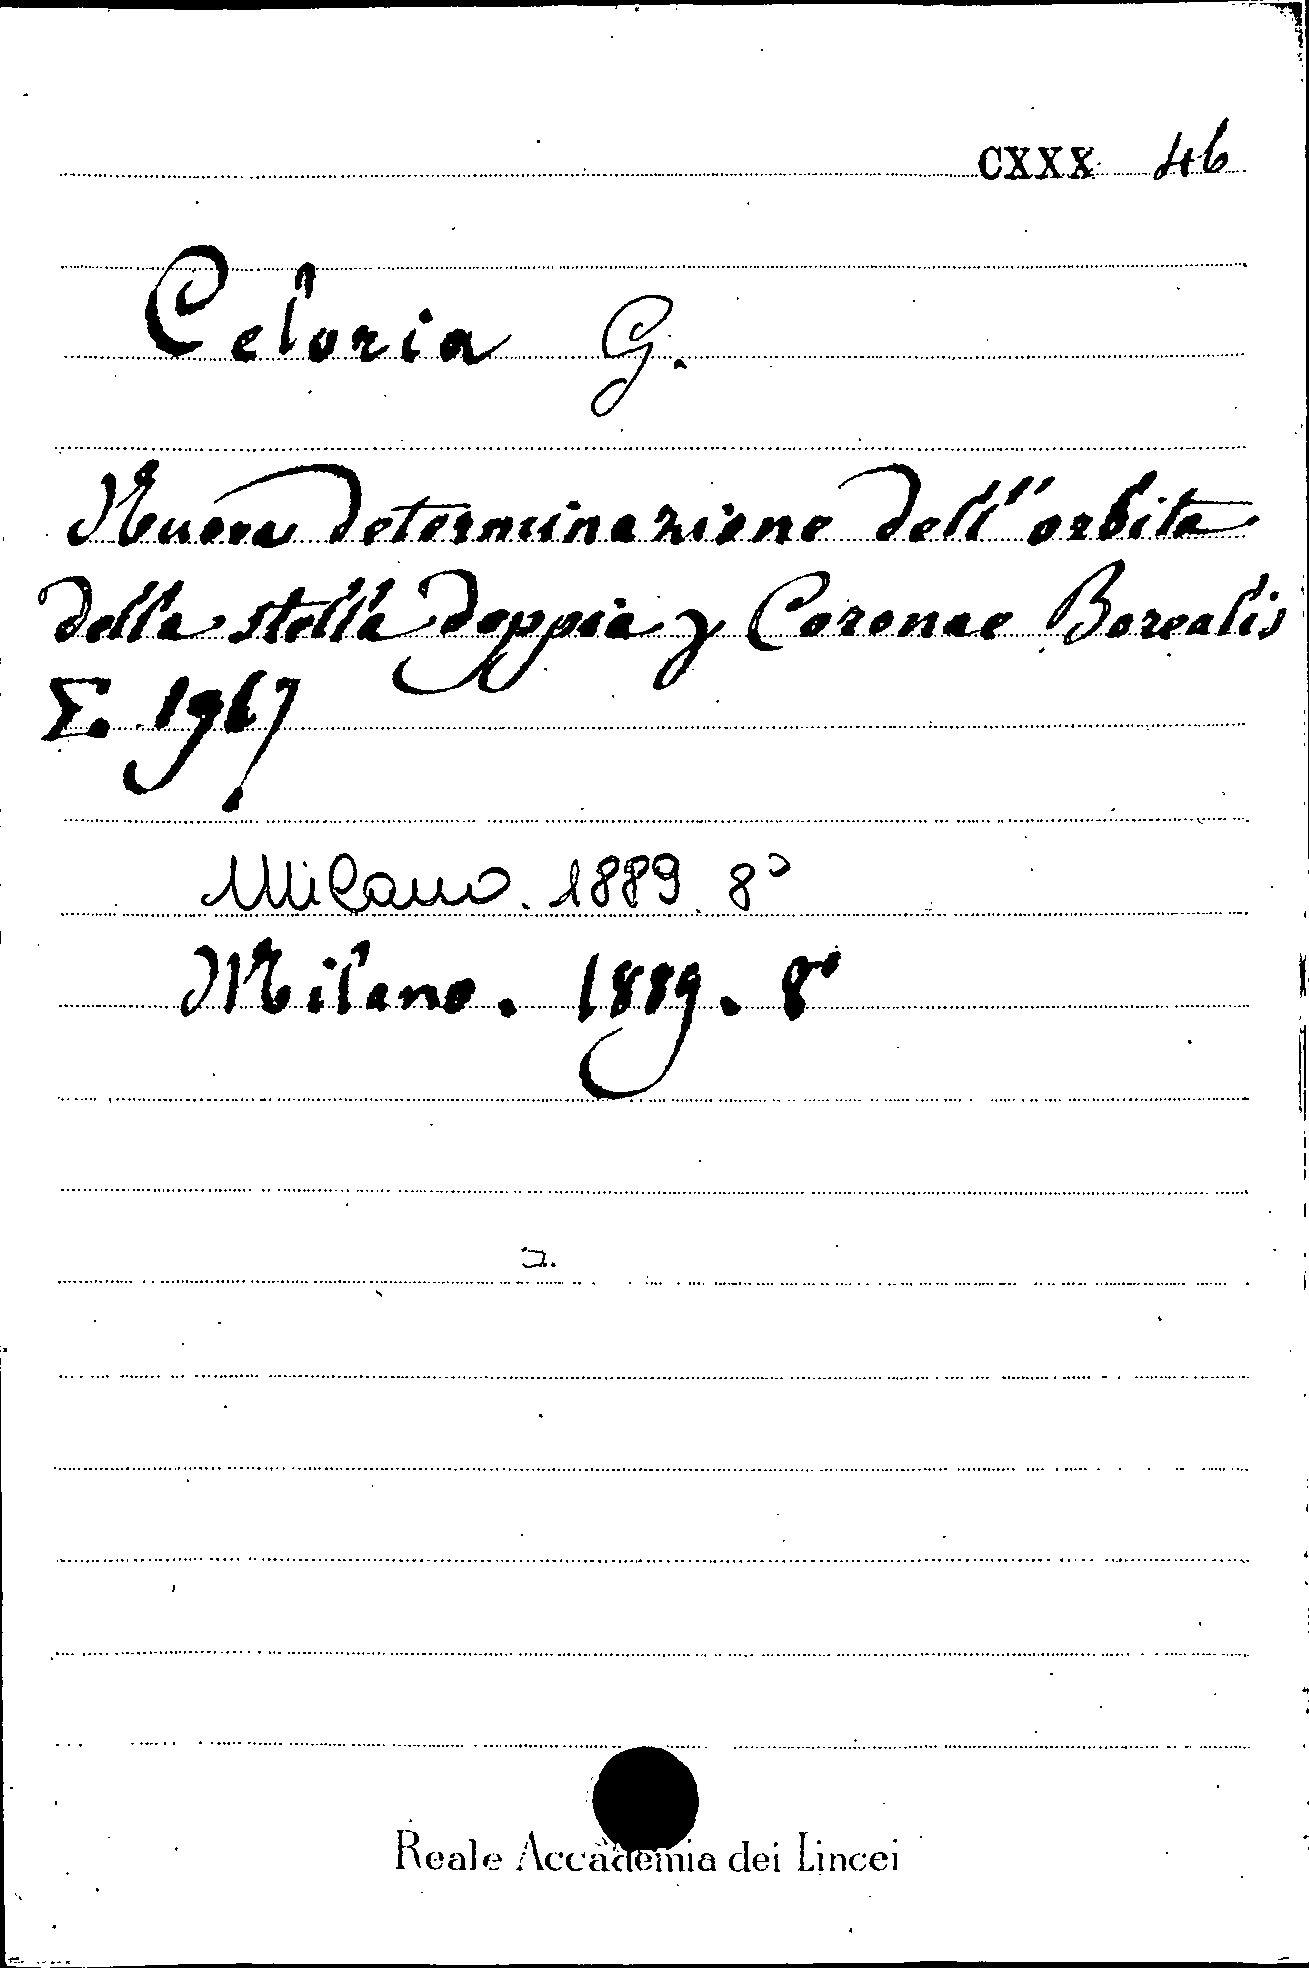 CXXX 46
Celoria G.
Nuova determinazione dell'orbita
della stella doppia γ Coronae Borealis
Σ. 1967
Milano. 1889. 8°
Milano. 1889. 8°
Reale Accademia dei Lincei